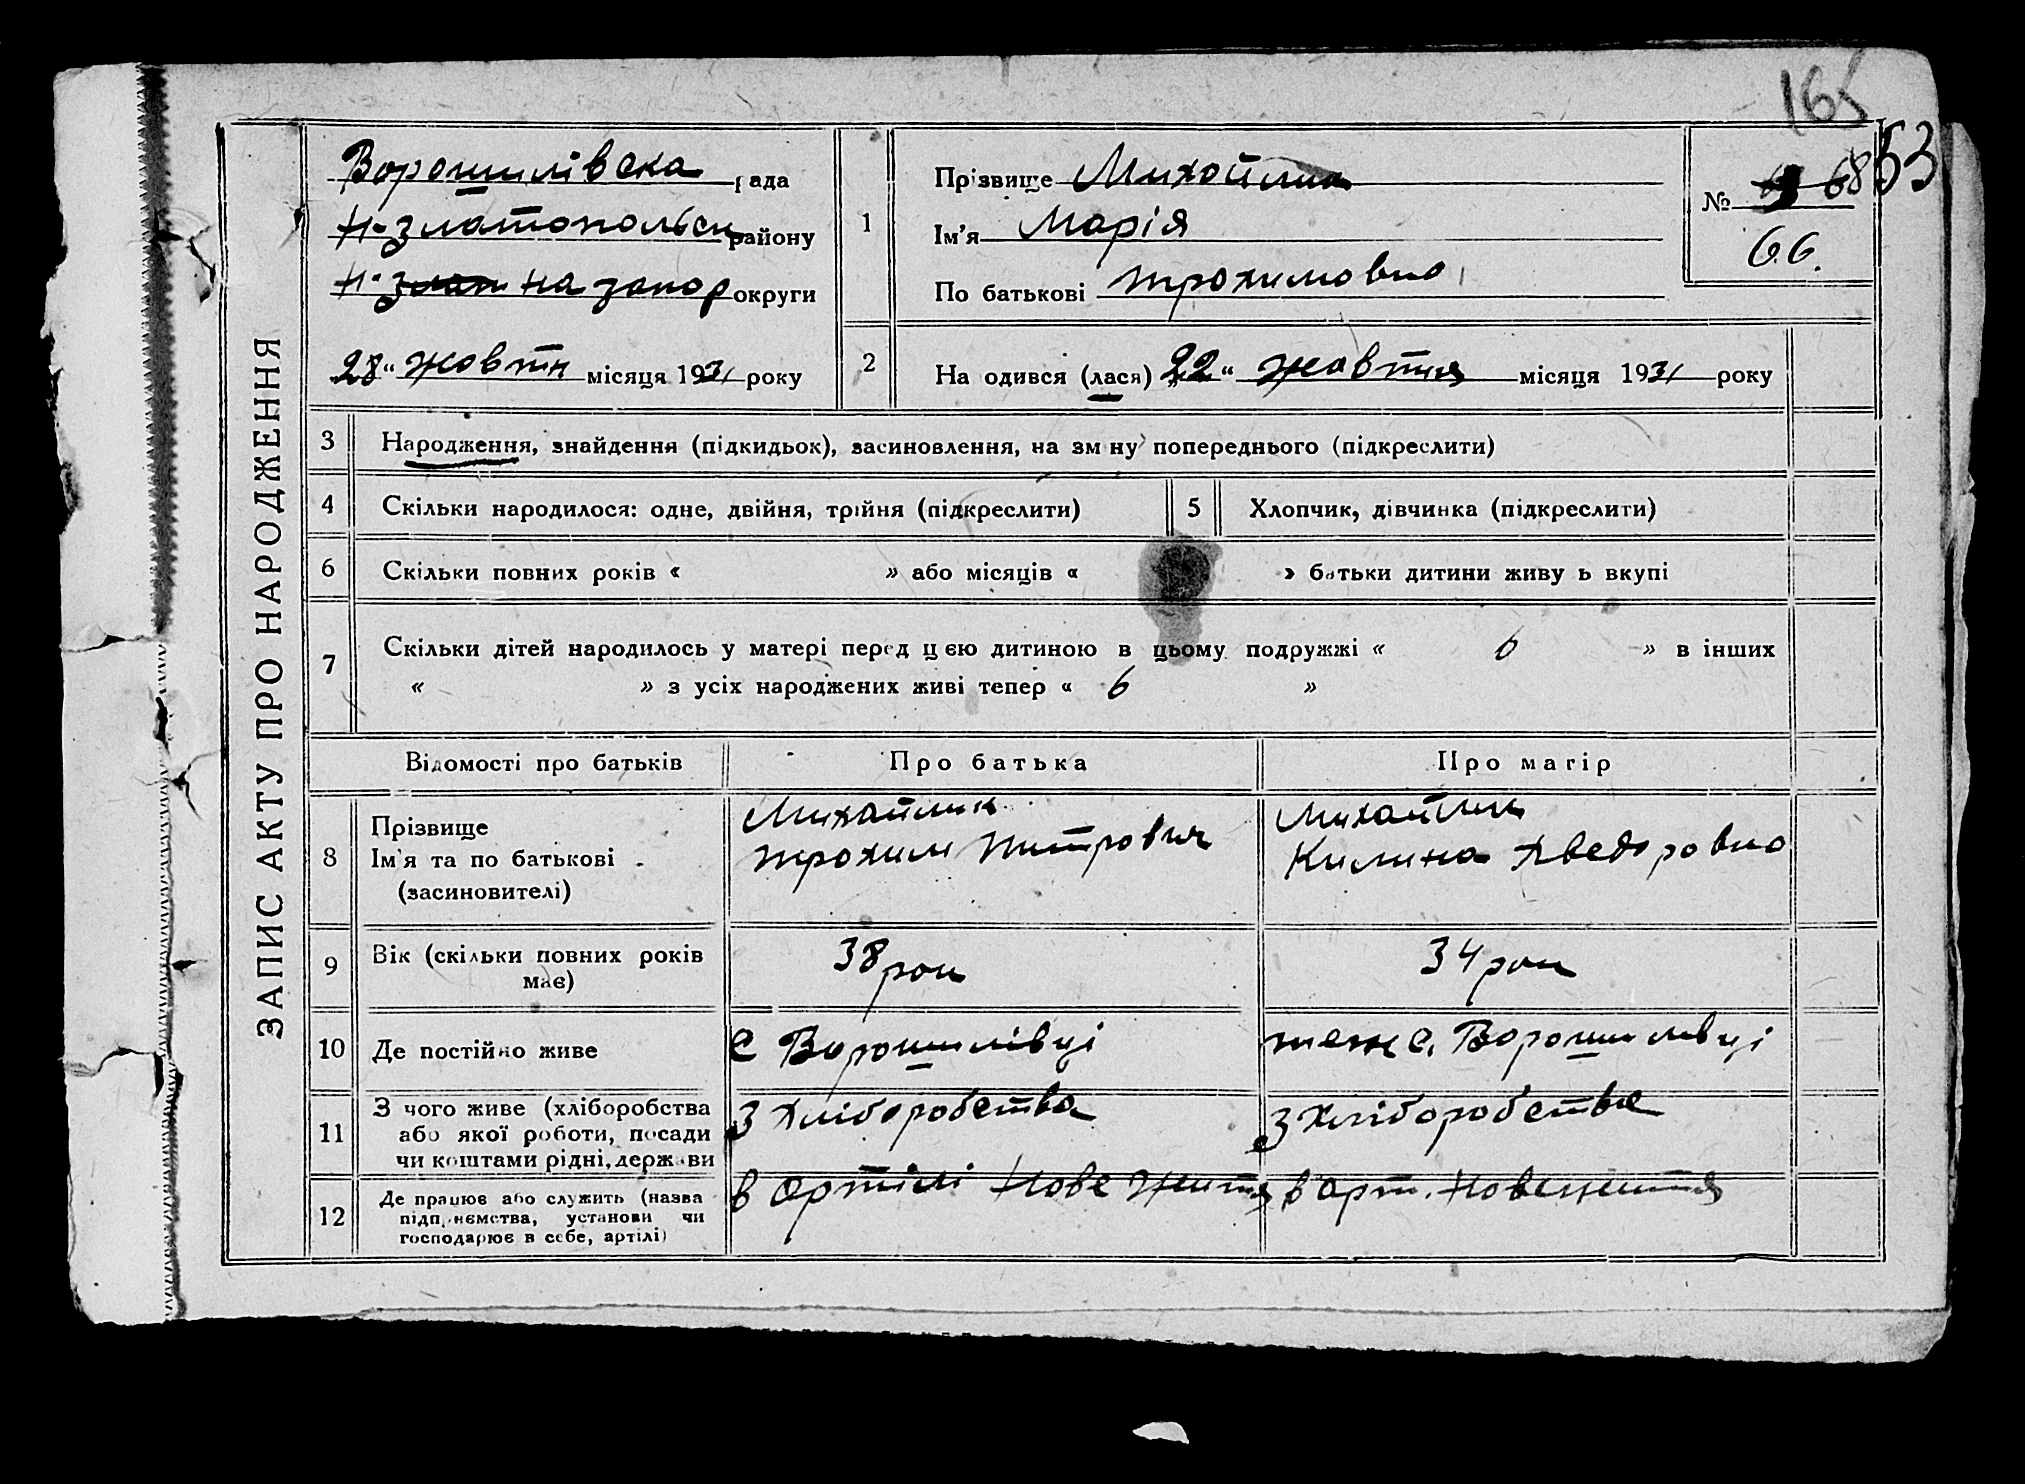 165
53
ЗАПИС АКТУ ПРО НАРОДЖЕННЯ
Ворошилівска рада
Н-Златопольськ району
на запор округи
28 " жовтн місяця 1931 року
1
Прізвище Михайлик
Ім'я Марія
По батькові Трохимовна
№ 68
66.
2
На одився (лася) „22 " жовтня місяця 1931 року
3 Народження, знайдення (підкидьок), засиновлення, на зм ну попереднього (підкреслити)
4 Скільки народилося: одне, двійня, трійня (підкреслити) 5 Хлопчик, дівчинка (підкреслити)
6 Скільки повних років « » або місяців « » батьки дитини живу ь вкупі
7 Скільки дітей народилось у матері перед цєю дитиною в цьому подружжі « 6 » в інших
« » з усіх народжених живі тепер « 6 »
Відомості про батьків Про батька Про матір
8 Прізвище
Ім'я та по батькові
(засиновителі)
Михайлик
Трохим Титрович
Михайлик
Килина Хведоровна
9 Вік (скільки повних років
має)
38 рок
34 рок
10 Де постійно живе с Ворошилівці теж с. Ворошилівці
11 З чого живе (хліборобства
або якої роботи, посади
чи коштами рідні, держави
З Хліборобства
З Хліборобства
12 Де працює або служить (назва
підприємства, установи чи
господарює в себе, артілі)
в Артілі Нове Життя
в арт. Нове життя